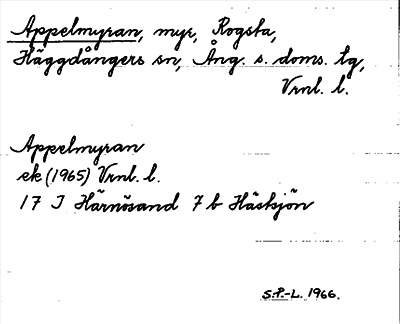 Appelmyran, myr, Rogsta,
Häggdångers sn, Ång. s. doms. lg,
Vrnl. l.
Appelmyran
ek (1965) Vrnl. l.
17 I Härnösand 7 b Hästsjön
S.P.-L. 1966.